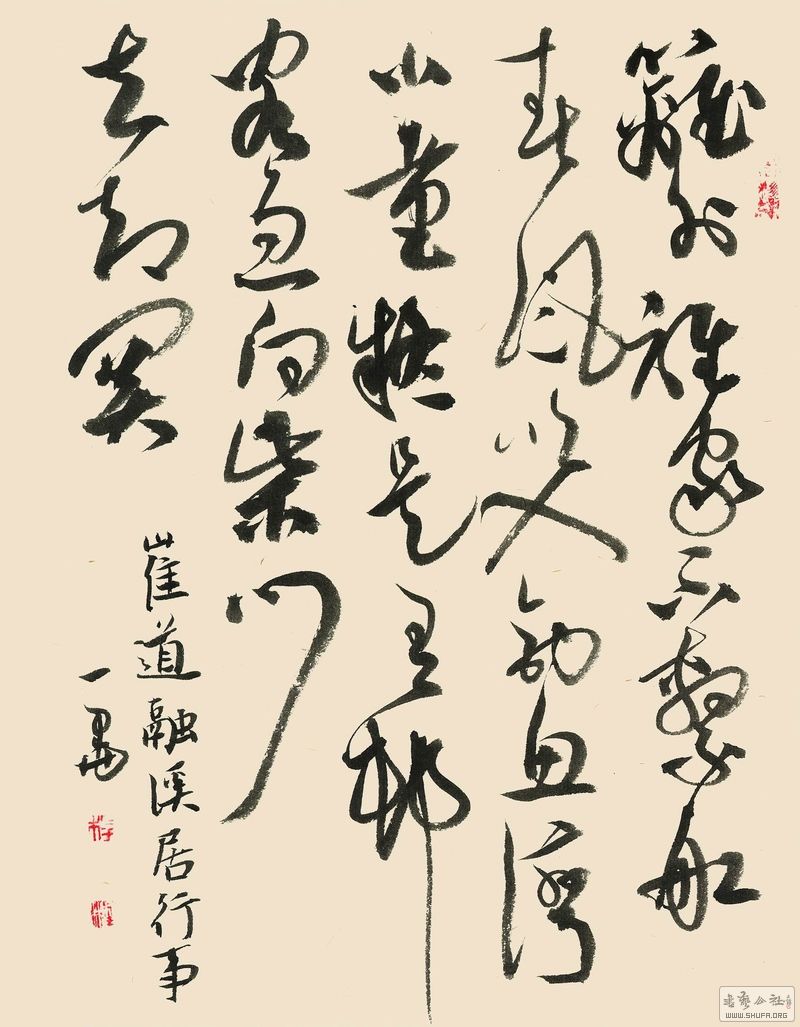 籬外誰家不繫船
春風吹入釣魚灣
小童疑是有邨
客急向柴門
去却關
崔道融溪居行事
一
书艺公社
WWW.SHUFA.ORG